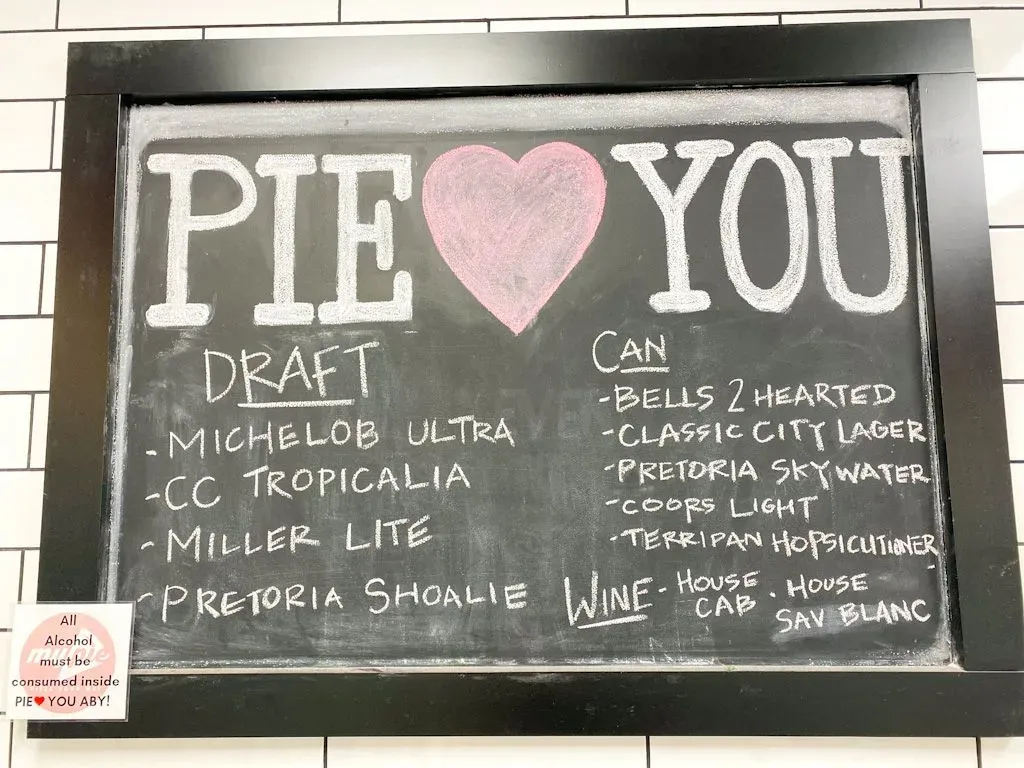 PIE YOU
DRAFT
- MICHELOB ULTRA
- CC TROPICALIA
- MILLER LITE
- PRETORIA SHOALIE
CAN
- BELLS 2 HEARTED
- CLASSIC CITY LAGER
- PRETORIA SKYWATER
- COORS LIGHT
- TERRIPAN HOPSICUTIONER
WINE - HOUSE CAB . HOUSE
SAV BLANC
All
Alcohol
must be
consumed inside
PIE♥YOU ABY!